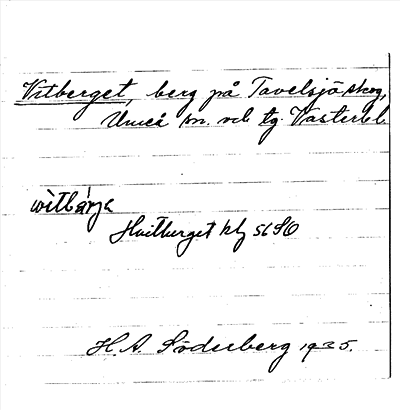 Vitberget, berg på Tavelsjö skog,
Umeå sn. och tg. Västerb.
witbärje
Hvitberget kbj 56 SO
H. A. Söderberg 1935.